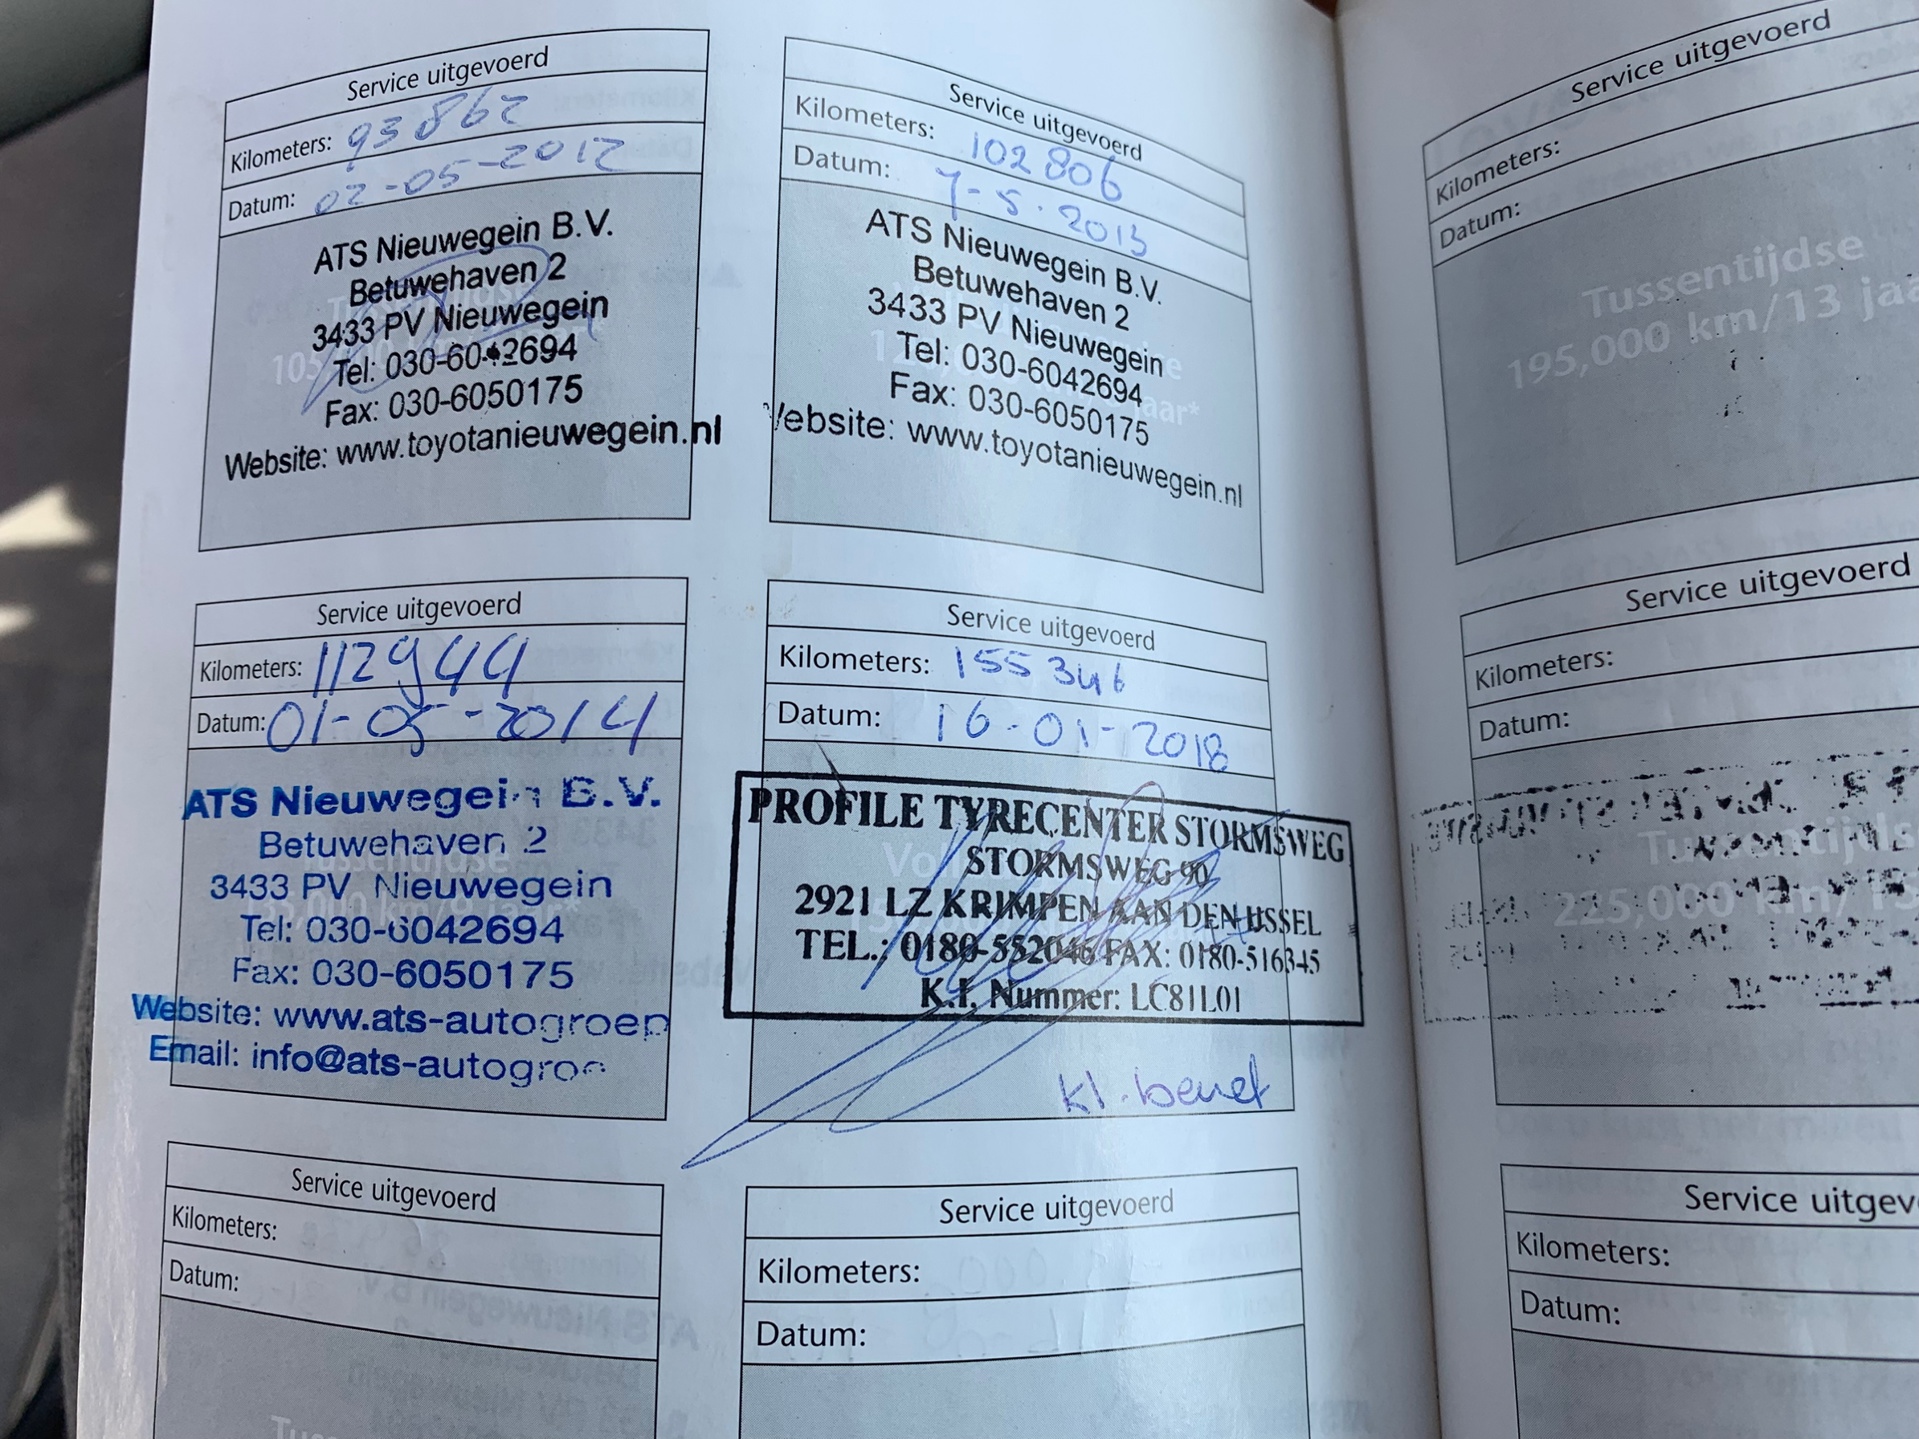 Service uitgevoerd
Kilometers: 93862
Datum: 02-05-2012
ATS Nieuwegein B.V.
Betuwehaven 2
3433 PV Nieuwegein
Tel: 030-6042694
Fax: 030-6050175
Website: www.toyotanieuwegein.nl
Service uitgevoerd
Kilometers: 102806
Datum: 7-5-2013
ATS Nieuwegein B.V.
Betuwehaven 2
3433 PV Nieuwegein
Tel: 030-6042694
Fax: 030-6050175
Website: www.toyotanieuwegein.nl
Service uitgevoerd
Kilometers: 112944
Datum: 01-05-2014
ATS Nieuwegein B.V.
Betuwehaven 2
3433 PV Nieuwegein
Tel: 030-6042694
Fax: 030-6050175
Website: www.ats-autogroep
Email: info@ats-autogroe
Service uitgevoerd
Kilometers: 155346
Datum: 16-01-2018
PROFILE TYRECENTER STORMSWEG
STORMSWEG 90
2921 LZ KRIMPEN AAN DEN IJSSEL
TEL.: 0180-552046 FAX: 0180-516345
K.I. Nummer: LC81L01
kl. beurt
Service uitgevoerd
Kilometers:
Datum:
Service uitgevoerd
Kilometers:
Datum:
Service uitgevoerd
Kilometers:
Datum:
Tussentijdse
195,000 km/13 jaa
Service uitgevoerd
Kilometers:
Datum:
Tussentijds
225,000 km/15
Service uitgev
Kilometers:
Datum: